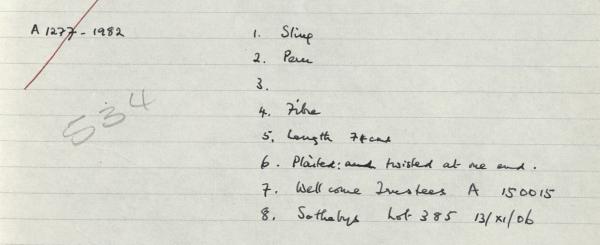 A 1277 - 1982
534
1. Sling
2. Peru
3.
4. Fibre
5. Length
6. Plaited: and twisted at one end.
7. Wellcome Trustees A 150015
8. Sothebys Lot 385 13/XI/06